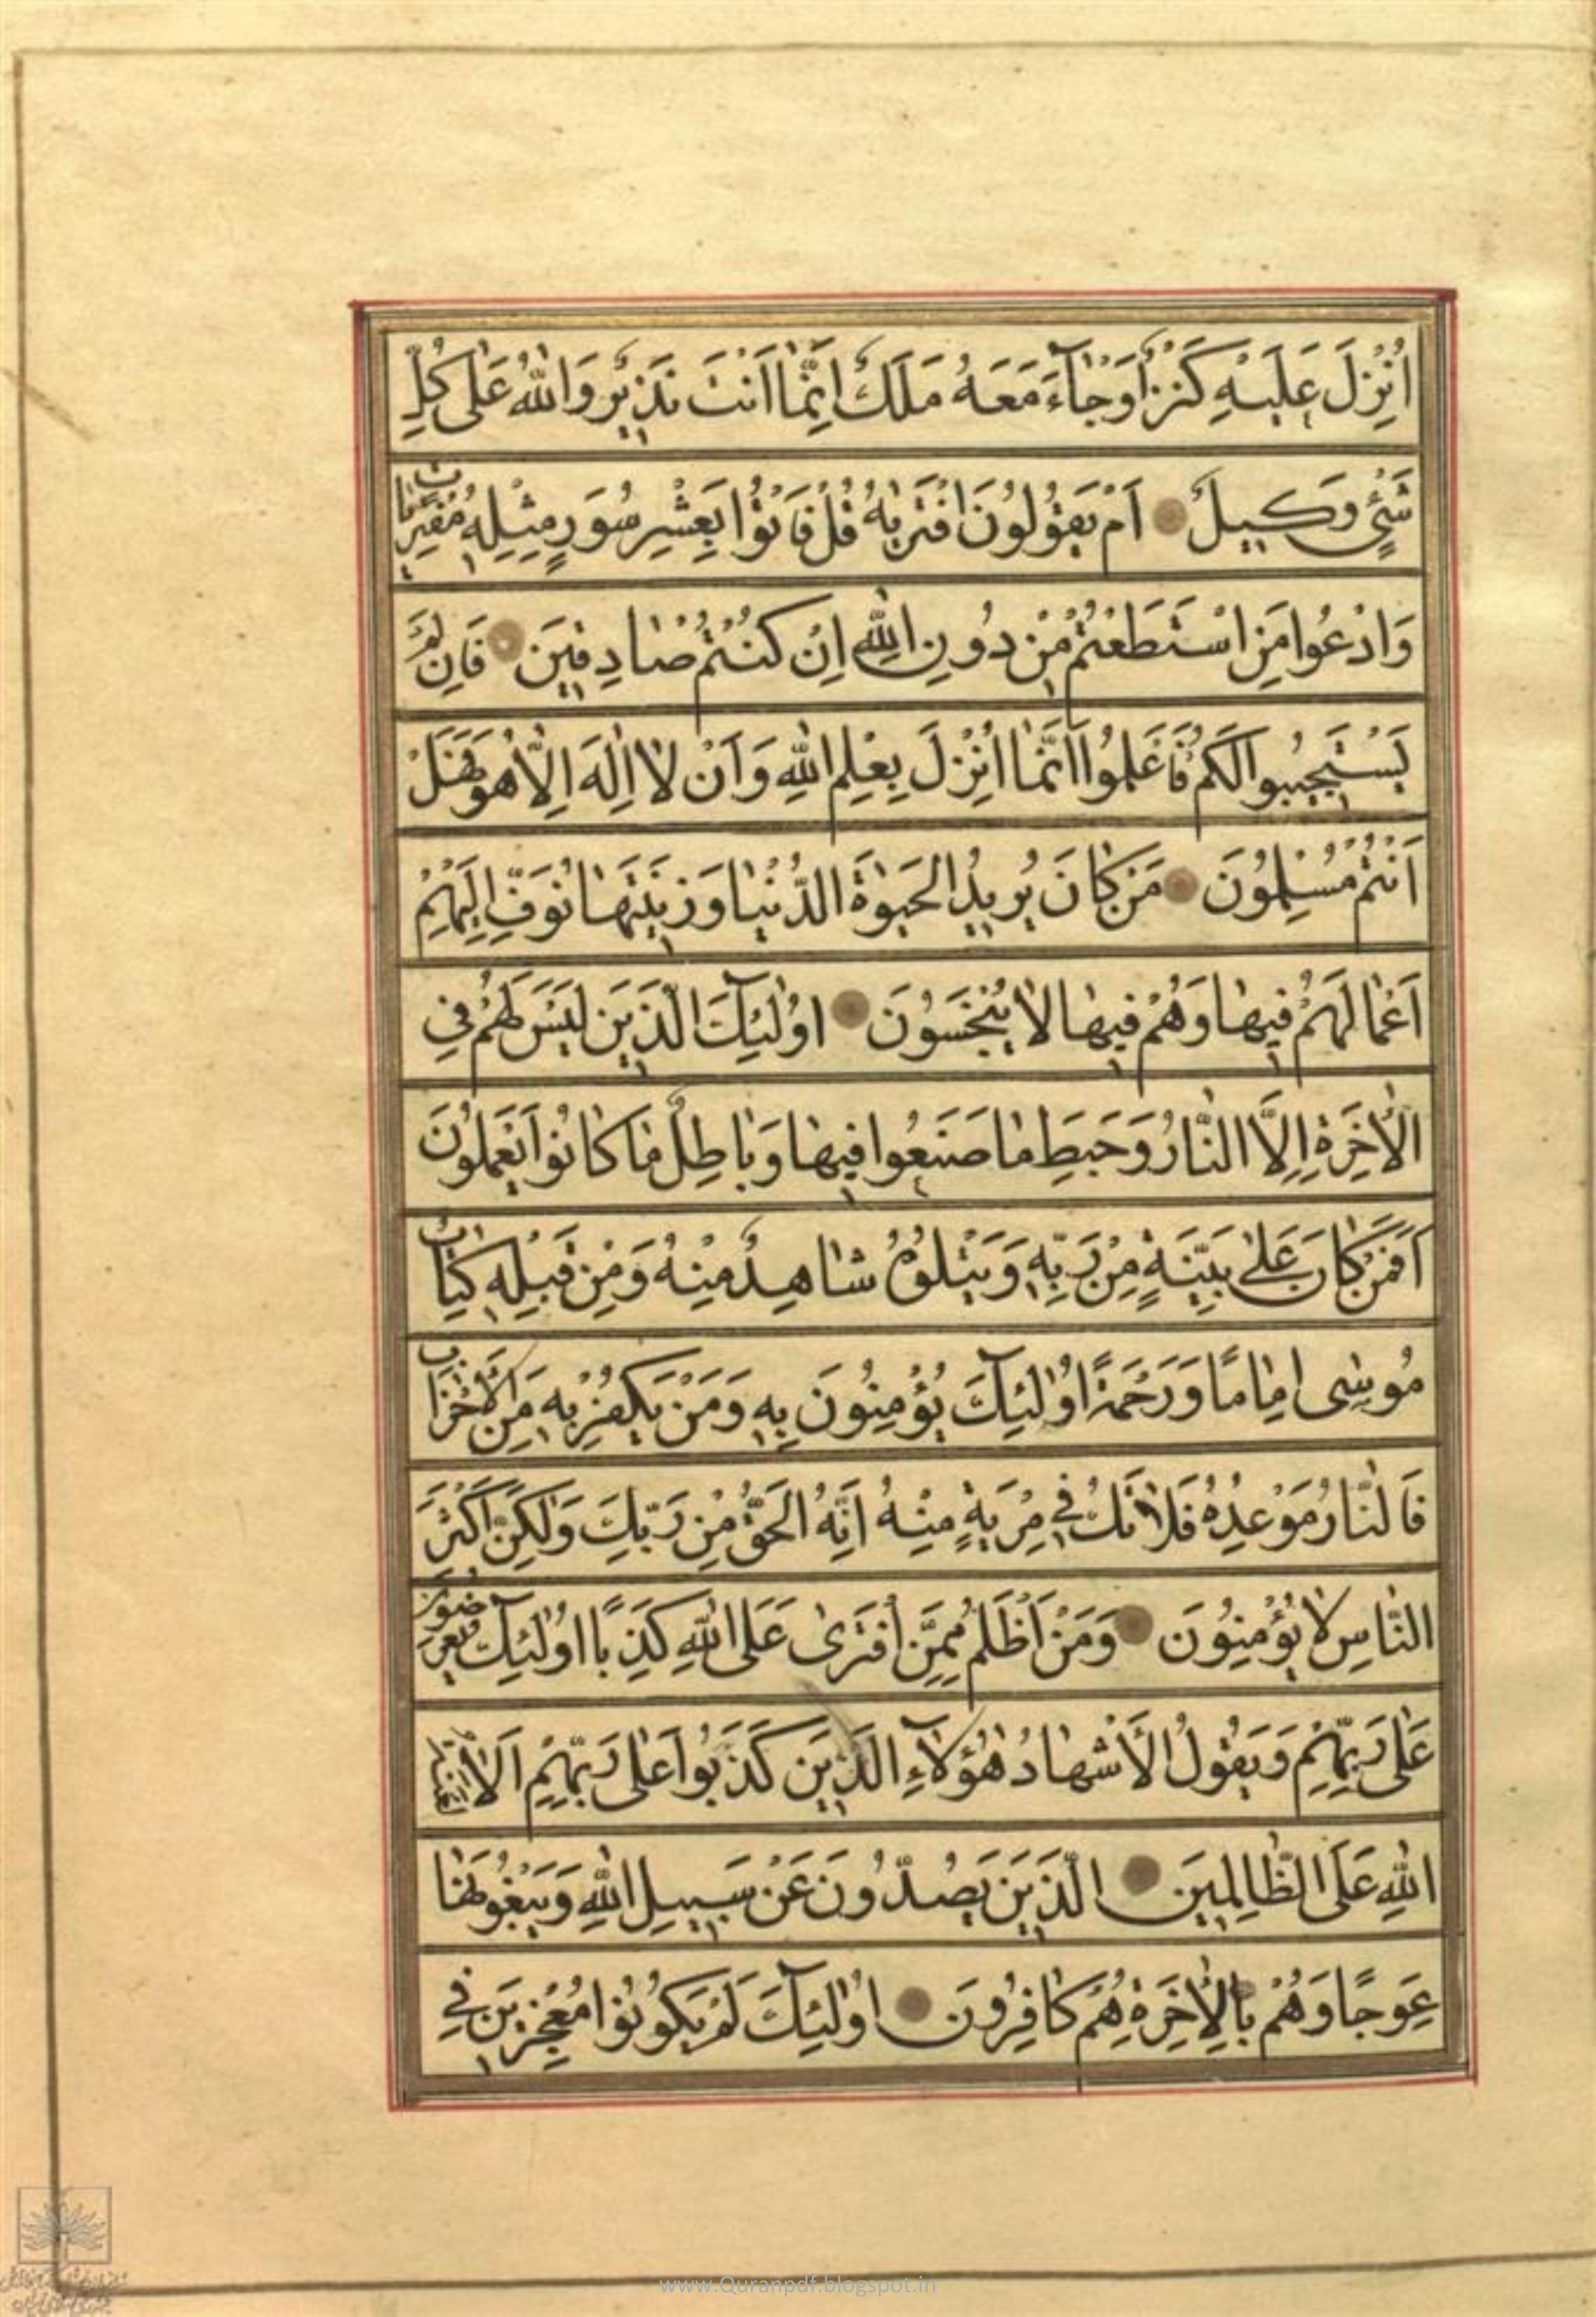 اُنْزِلَ عَلَيْهِ كَنْزٌ اَوْ جٰاۤءَ مَعَهُ مَلَكٌ اِنَّمٰا اَنْتَ نَذِيرٌ وَاللّٰهُ عَلٰى كُلِّ
شَيْءٍ وَكِيلٌ اَمْ يَقُولُونَ افْتَرٰيهُ قُلْ فَاْتُوا بِعَشْرِ سُوَرٍ مِثْلِهِ مُفْتَرَيٰاتٍ
وَادْعُوا مَنِ اسْتَطَعْتُمْ مِنْ دُونِ اللّٰهِ اِنْ كُنْتُمْ صٰادِقِينَ فَاِنْ لَمْ
يَسْتَجِيبُوا لَكُمْ فَاعْلَمُوا اَنَّمٰا اُنْزِلَ بِعِلْمِ اللّٰهِ وَاَنْ لٰا اِلٰهَ اِلّٰا هُوَ فَهَلْ
اَنْتُمْ مُسْلِمُونَ مَنْ كٰانَ يُرِيدُ الْحَيٰوةَ الدُّنْيٰا وَزِينَتَهٰا نُوَفِّ اِلَيْهِمْ
اَعْمٰالَهُمْ فِيهٰا وَهُمْ فِيهٰا لٰا يُبْخَسُونَ اُولٰۤئِكَ الَّذِينَ لَيْسَ لَهُمْ فِي
الْاٰخِرَةِ اِلَّا النّٰارُ وَحَبِطَ مٰا صَنَعُوا فِيهٰا وَبٰاطِلٌ مٰا كٰانُوا يَعْمَلُونَ
اَفَمَنْ كٰانَ عَلٰى بَيِّنَةٍ مِنْ رَبِّهِ وَيَتْلُوهُ شٰاهِدٌ مِنْهُ وَمِنْ قَبْلِهِ كِتٰابُ
مُوسٰى اِمٰامًا وَرَحْمَةً اُولٰۤئِكَ يُؤْمِنُونَ بِهِ وَمَنْ يَكْفُرْ بِهِ مِنَ الْاَحْزٰابِ
فَالنّٰارُ مَوْعِدُهُ فَلٰا تَكُ فِي مِرْيَةٍ مِنْهُ اِنَّهُ الْحَقُّ مِنْ رَبِّكَ وَلٰكِنَّ اَكْثَرَ
النّٰاسِ لٰا يُؤْمِنُونَ وَمَنْ اَظْلَمُ مِمَّنِ افْتَرٰى عَلَى اللّٰهِ كَذِبًا اُولٰۤئِكَ يُعْرَضُونَ
عَلٰى رَبِّهِمْ وَيَقُولُ الْاَشْهٰادُ هٰؤُلٰۤاءِ الَّذِينَ كَذَبُوا عَلٰى رَبِّهِمْ اَلٰا
اللّٰهِ عَلَى الظّٰالِمِينَ الَّذِينَ يَصُدُّونَ عَنْ سَبِيلِ اللّٰهِ وَيَبْغُونَهٰا
عِوَجًا وَهُمْ بِالْاٰخِرَةِ هُمْ كٰافِرُونَ اُولٰۤئِكَ لَمْ يَكُونُوا مُعْجِزِينَ فِي
www.Quranpdf.blogspot.in